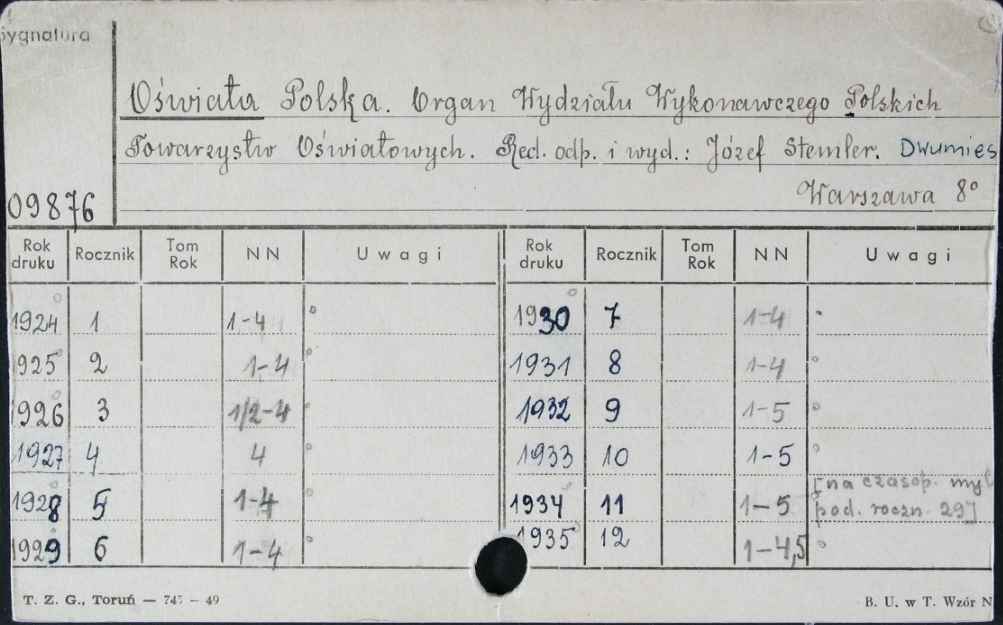 Sygnatura
Oświata Polska. Organ Wydziału Wykonawczego Polskich
Towarzystw Oświatowych. Red. odp. i wyd.: Józef Stemler. Dwumies
Warszawa 8°
09876
Rok druku Rocznik Tom Rok NN Uwagi Rok druku Rocznik Tom Rok NN Uwagi
1924 1 1-4 1930 7 1-4
1925 2 1-4 1931 8 1-4
1926 3 1/2-4 1932 9 1-5
1927 4 4 1933 10 1-5
1928 5 1-4 1934 11 1-5 [na czasop. myl
pod. roczn. 29]
1929 6 1-4 1935 12 1-4,5
T. Z. G., Toruń — 74 - 49 B. U. w T. Wzór N